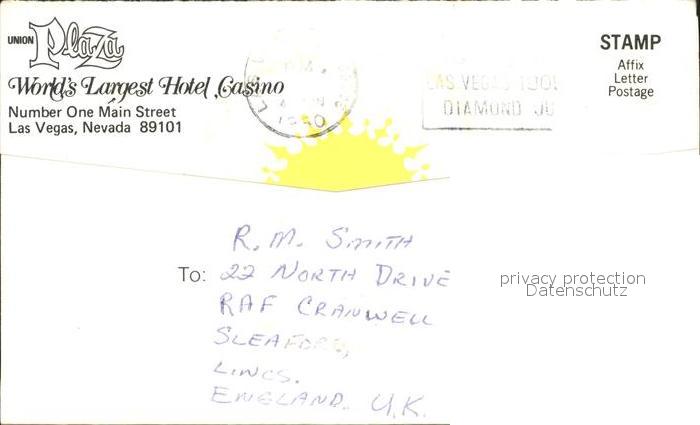 UNION Plaza
World's Largest Hotel Casino
Number One Main Street
Las Vegas, Nevada 89101
1980
LAS VEGAS 190
DIAMOND JU
STAMP
Affix
Letter
Postage
R. M. SMITH
To: 22 NORTH DRIVE
RAF CRANWELL
SLEAFORD,
LINCS.
ENGLAND. U.K.
privacy protection
Datenschutz